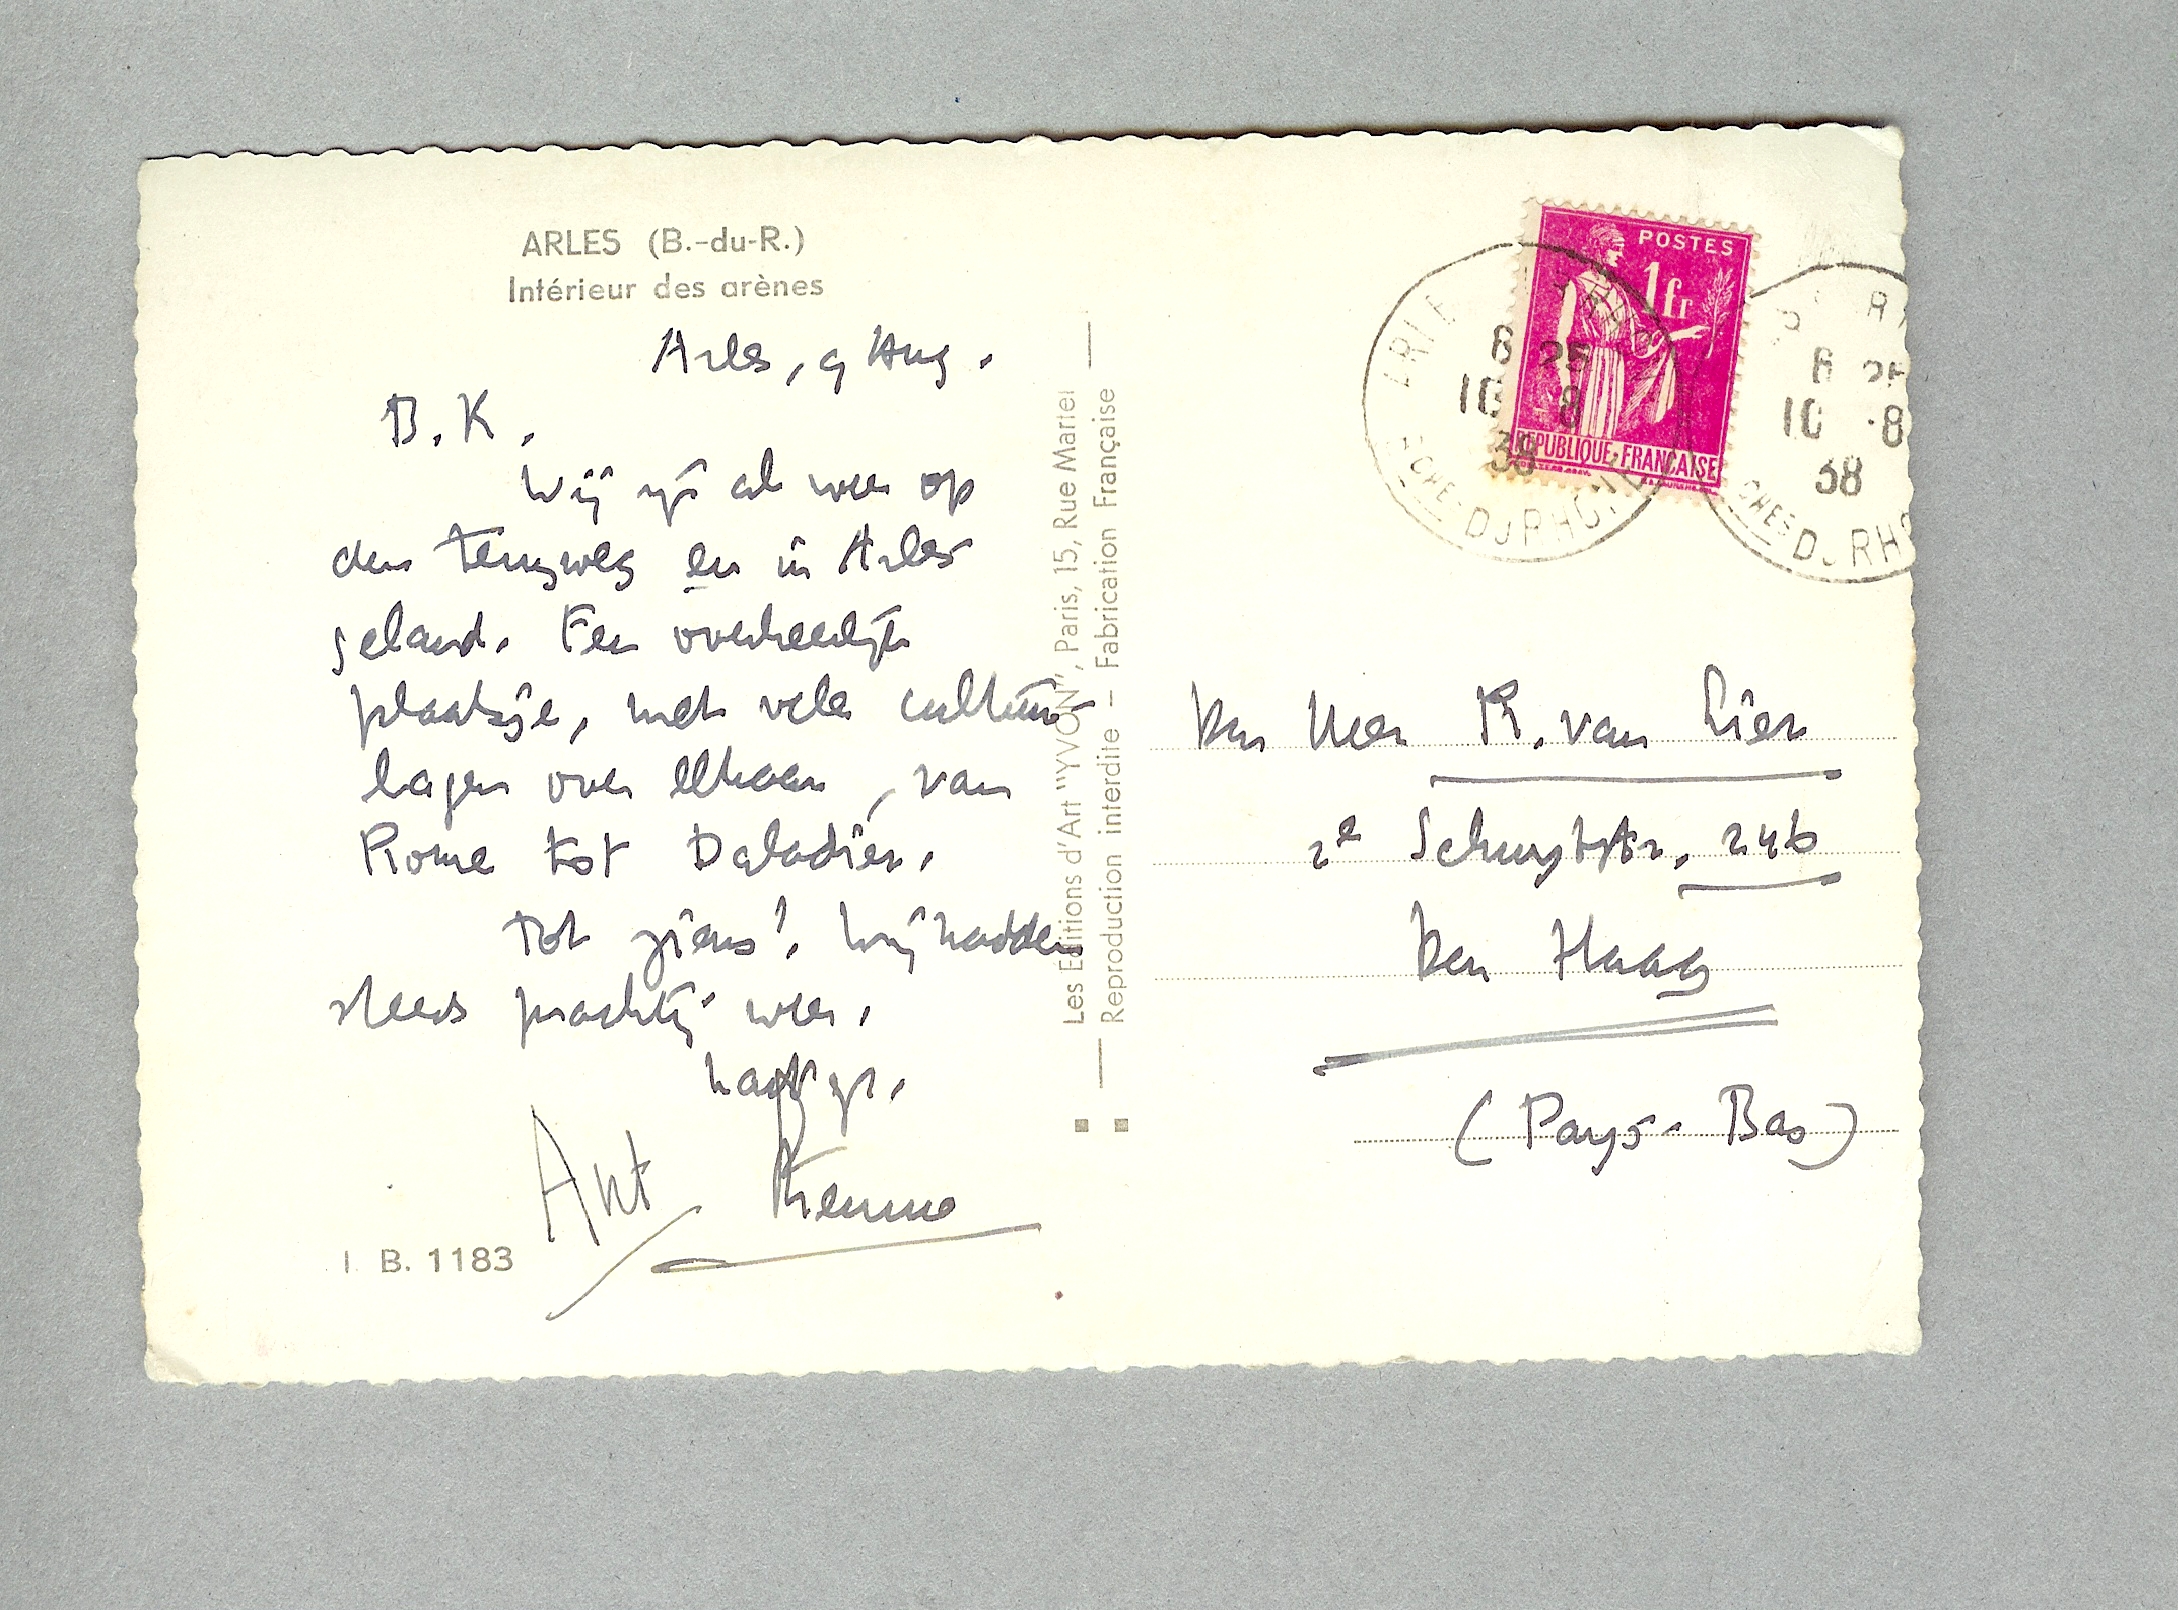 ARLES (B.-du-R.)
Intérieur des arènes
Arles, 9 Aug.
B.K.
Wij zijn al weer op
den terugweg en in Arles
geland. Een overheerlijk
plaatsje, met vele cultuur-
lagen over elkaar, van
Rome tot Daladier.
Tot ziens! Wij hadden
steeds prachtig weer.
Hartgr.
Ant Menno
I B. 1183
Les Editions d'Art "YVON", Paris, 15, Rue Martel
Reproduction interdite – Fabrication Française
POSTES
1 fr
REPUBLIQUE FRANÇAISE
ARLE
6 25
10 ·8
38
CHES DU RHÔNE
6 25
10 ·8
38
CHES DU RHÔ
Den Heer R. van Lier
2e Schuytstr. 246
Den Haag
(Pays-Bas)